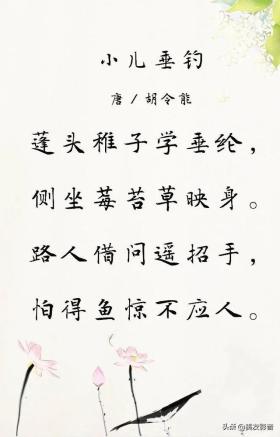 小儿垂钓
唐/胡令能
蓬头稚子学垂纶，
侧坐莓苔草映身。
路人借问遥招手，
怕得鱼惊不应人。